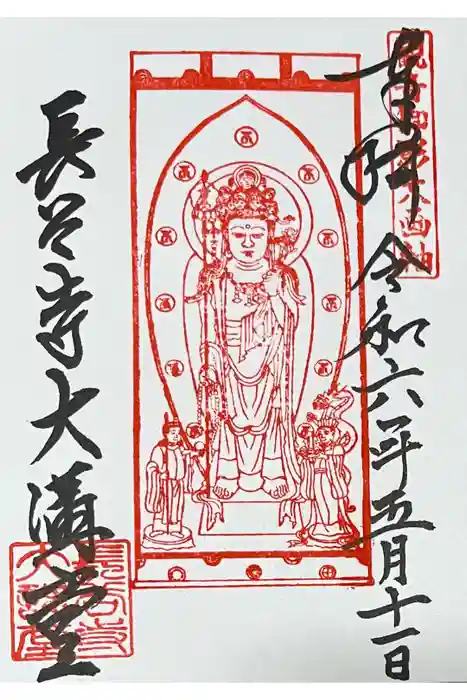 奉拝 令和六年五月十一日
長谷寺大講堂